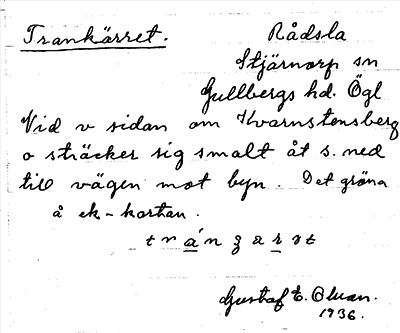 Trankärret.
Rådsla
Stjärnorp sn
Gullbergs hd. Ögl
Vid v sidan om Kvarnstensberg
o sträcker sig smalt åt s. ned
till vägen mot byn. Det gröna
å ek-kartan.
Gustaf E.
1936.